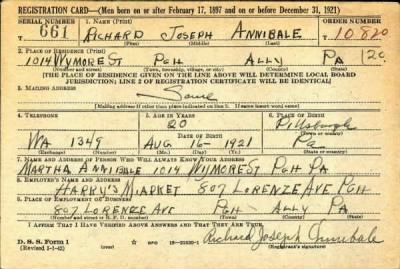 REGISTRATION CARD—(Men born on or after February 17, 1897 and on or before December 31, 1921)
SERIAL NUMBER 1. NAME (Print) ORDER NUMBER
T 661 RICHARD JOSEPH ANNIBALE 10820
(First) (Middle) (Last)
2. PLACE OF RESIDENCE (Print)
1014 WYMORE ST PGH ALLY PA 120
(Number and street) (Town, township, village, or city) (County) (State)
[THE PLACE OF RESIDENCE GIVEN ON THE LINE ABOVE WILL DETERMINE LOCAL BOARD
JURISDICTION; LINE 2 OF REGISTRATION CERTIFICATE WILL BE IDENTICAL]
3. MAILING ADDRESS
Same
[Mailing address if other than place indicated on line 2. If same insert word same]
4. TELEPHONE 5. AGE IN YEARS 6. PLACE OF BIRTH
20 Pittsburgh
DATE OF BIRTH
WA 1349 AUG 16- 1921 Pa
(Exchange) (Number) (Mo.) (Day) (Yr.) (State or country)
7. NAME AND ADDRESS OF PERSON WHO WILL ALWAYS KNOW YOUR ADDRESS
MARTHA ANNIBALE 1014 WYMORE ST PGH PA
8. EMPLOYER'S NAME AND ADDRESS
HARRY'S MARKET 807 LORENZE AVE PGH
9. PLACE OF EMPLOYMENT OR BUSINESS
807 LORENZE AVE PGH- ALLY PA
(Number and street or R. F. D. number) (Town) (County) (State)
I AFFIRM THAT I HAVE VERIFIED ABOVE ANSWERS AND THAT THEY ARE TRUE.
D. S. S. Form 1
(Revised 1-1-42) GPO Richard Joseph Annibale
(Registrant's signature)